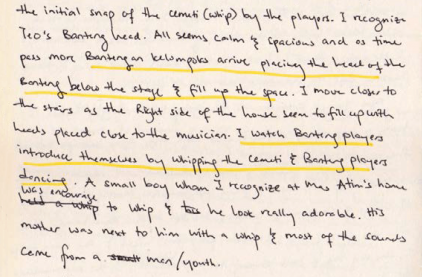 the initial snap of the cemeti (whip) by the players. I recognize
Teo's Banteng head. All seems calm & spacious and as time
pass more Bantengan kelompoks arrive placing the head of the
Banteng below the stage & fill up the space. I move closer to
the stairs as the Right side of the house seem to fill up with
heads placed close to the musician. I watch Banteng players
introduce themselves by whipping the cemeti & Banteng players
dancing. A small boy whom I recognize at Mas Atim's home
was encourage
held a whip to whip & he look really adorable. His
mother was next to him with a whip & most of the sounds
came from a man/youth.